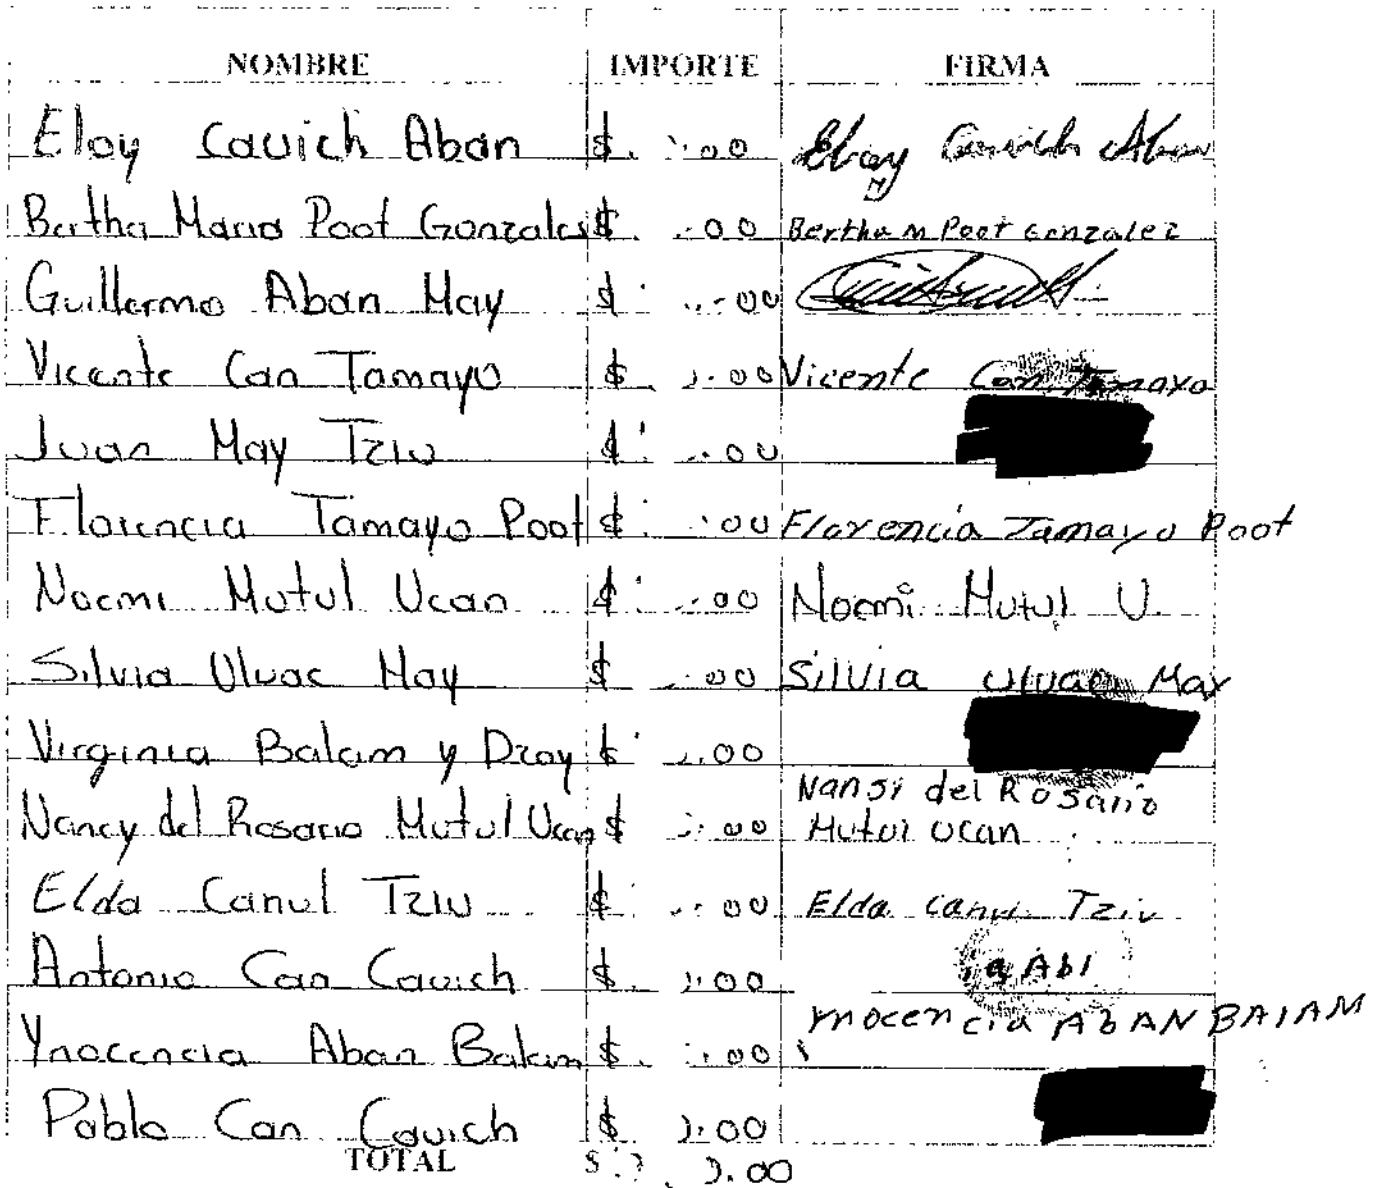 NOMBRE IMPORTE FIRMA
Eloy Cauich Aban $ .00 Eloy Cauich Aban
Bertha Maria Poot Gonzales $ .00 Bertha M Poot Gonzalez
Guillermo Aban May $ .00
Vicente Can Tamayo $ .00 Vicente Can Tamayo
Juan May Tziu $ .00
Florencia Tamayo Poot $ .00 Florencia Tamayo Poot
Noemi Mutul Ucan $ .00 Noemi Mutul U.
Silvia Uluac May $ .00 Silvia Uluac May
Virginia Balam y Dzay $ .00
Nancy del Rosario Mutul Ucan $ .00 Nansi del Rosario
Mutul Ucan
Elda Canul Tziu $ .00 Elda Canul Tziu
Antonio Can Cauich $ .00
Ynocencia Aban Balam $ .00 Ynocencia Aban BALAM
Pablo Can Cauich $ .00
TOTAL $ .00